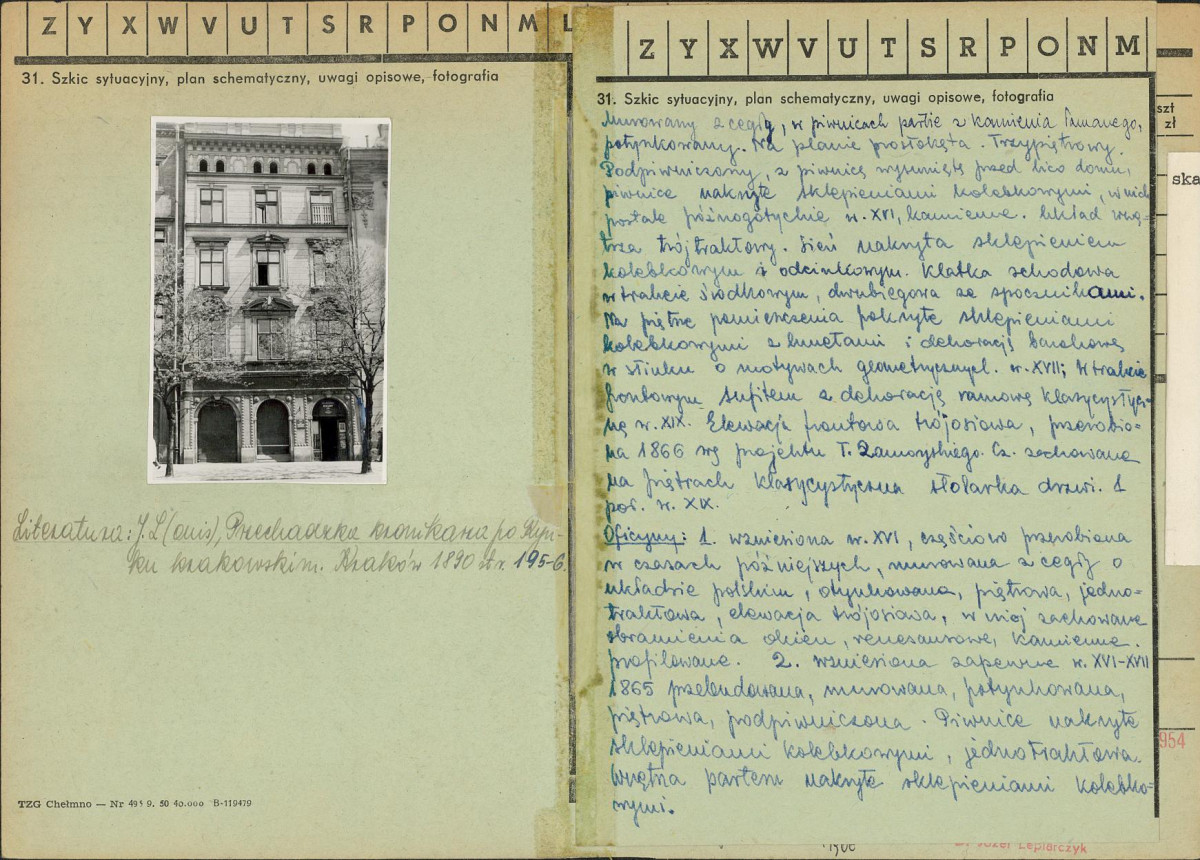 Z Y X W V U T S R P O N M L
31. Szkic sytuacyjny, plan schematyczny, uwagi opisowe, fotografia
Literatura: J. L(ouis), Przechadzka kronikarza po Ryn-
ku krakowskim. Kraków 1890 str. 195-6.
TZG Chełmno — Nr 495 9. 50 40.000 B-119479
Z Y X W V U T S R P O N M
31. Szkic sytuacyjny, plan schematyczny, uwagi opisowe, fotografia
Murowany z cegły, w piwnicach partie z kamienia łamanego,
potynkowany. Na planie prostokąta. Trzypiętrowy.
Podpiwniczony, z piwnicą wysuniętą przed lico domu,
piwnice nakryte sklepieniami kolebkowymi, w nich
portale późnogotyckie w. XVI, kamienne. Układ wnę-
trza trójtraktowy. Sień nakryta sklepieniem
kolebkowym i odcinkowym. Klatka schodowa
w trakcie środkowym, dwubiegowa ze spocznikami.
Na piętrze pomieszczenia pokryte sklepieniami
kolebkowymi z lunetami i dekoracją barokową
w stiuku o motywach geometrycznych. w. XVII; w trakcie
frontowym sufitem z dekoracją ramową klasycystycz-
ną w. XIX. Elewacja frontowa trójosiowa, przerobio-
na 1866 wg projektu T. Zamoyskiego. Cz. zachowana
na piętrach klasycystyczna stolarka drzwi. 1
poł. w. XIX.
Oficyny: 1. wzniesiona w. XVI, częściowo przerobiona
w czasach późniejszych, murowana z cegły o
układzie polskim, otynkowana, piętrowa, jedno-
traktowa, elewacja trójosiowa, w niej zachowane
obramienia okien, renesansowe, kamienne.
profilowane. 2. wzniesiona zapewne w. XVI-XVII
1865 przebudowana, murowana, potynkowana,
piętrowa, podpiwniczona. Piwnice nakryte
sklepieniami kolebkowymi, jednotraktowa.
Wnętrza parteru nakryte sklepieniami kolebko-
wymi.
szt
zł
ska
954
1966
Dr Józef Lepiarczyk